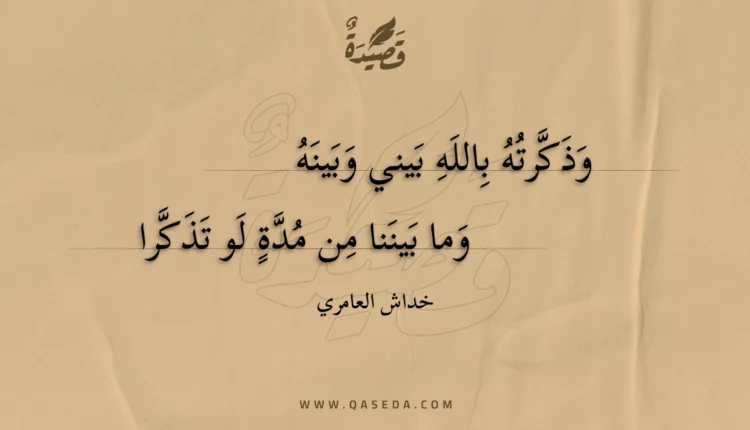 قَصِيدَةٌ
وَذَكَّرتُهُ بِاللَهِ بَيني وَبَينَهُ
وَما بَينَنا مِن مُدَّةٍ لَو تَذَكَّرا
خداش العامري
WWW.QASEDA.COM